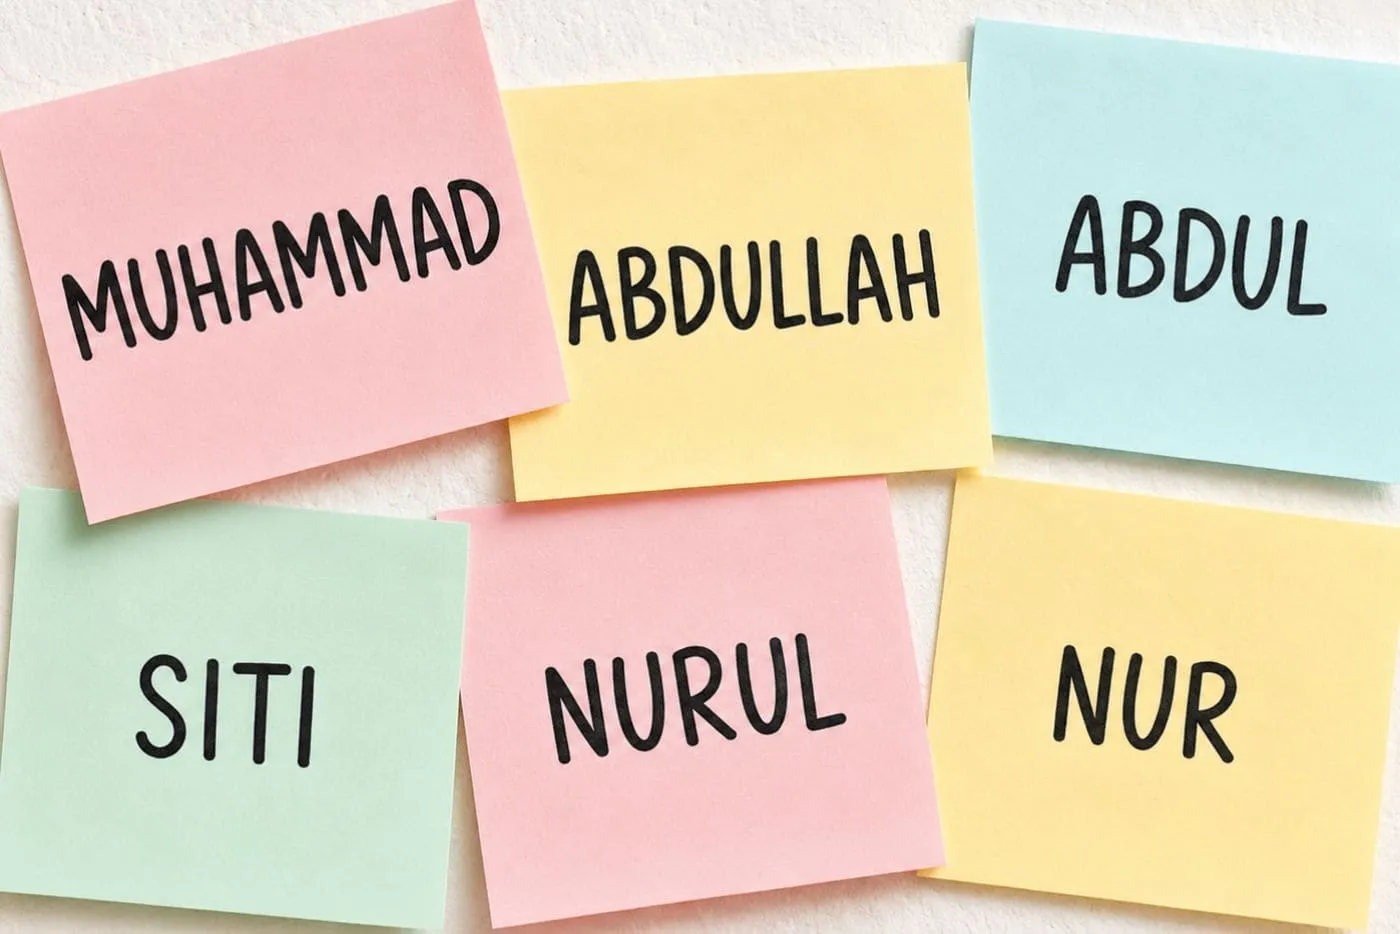 MUHAMMAD
ABDULLAH
ABDUL
SITI
NURUL
NUR